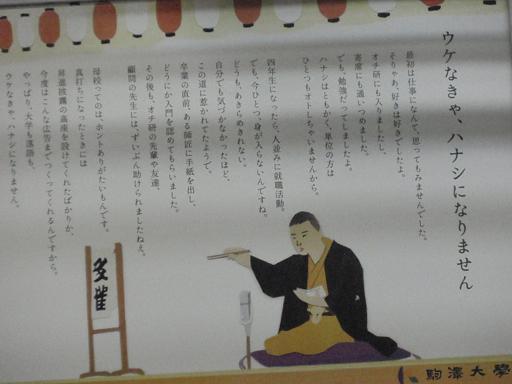 ウケなきゃ、ハナシになりません
最初は仕事になんて、思ってもみませんでした。
そりゃあ、好きは好きでしたよ。
オチ研にも入りましたし、
寄席にも通いつめました。
でも、勉強だってしましたよ。
ハナシはともかく、単位の方は
ひとつもオトしちゃいませんから。
四年生になったら、人並みに就職活動。
でも、今ひとつ、身が入らないんですね。
どうも、あきらめきれない。
自分でも気づかなかったほど、
この道に惹かれてたようで。
卒業の直前、ある師匠に手紙を出し、
どうにか入門を認めてもらいました。
その後も、オチ研の先輩や友達、
顧問の先生には、ずいぶん助けられましたねえ。
母校ってのは、ホントありがたいもんです。
真打ちになったときには
昇進披露の高座を設けてくれたばかりか、
今度はこんな広告までつくってくれるんですから。
やっぱり、大学も落語も、
ウケなきゃ、ハナシになりません。
駒澤大學